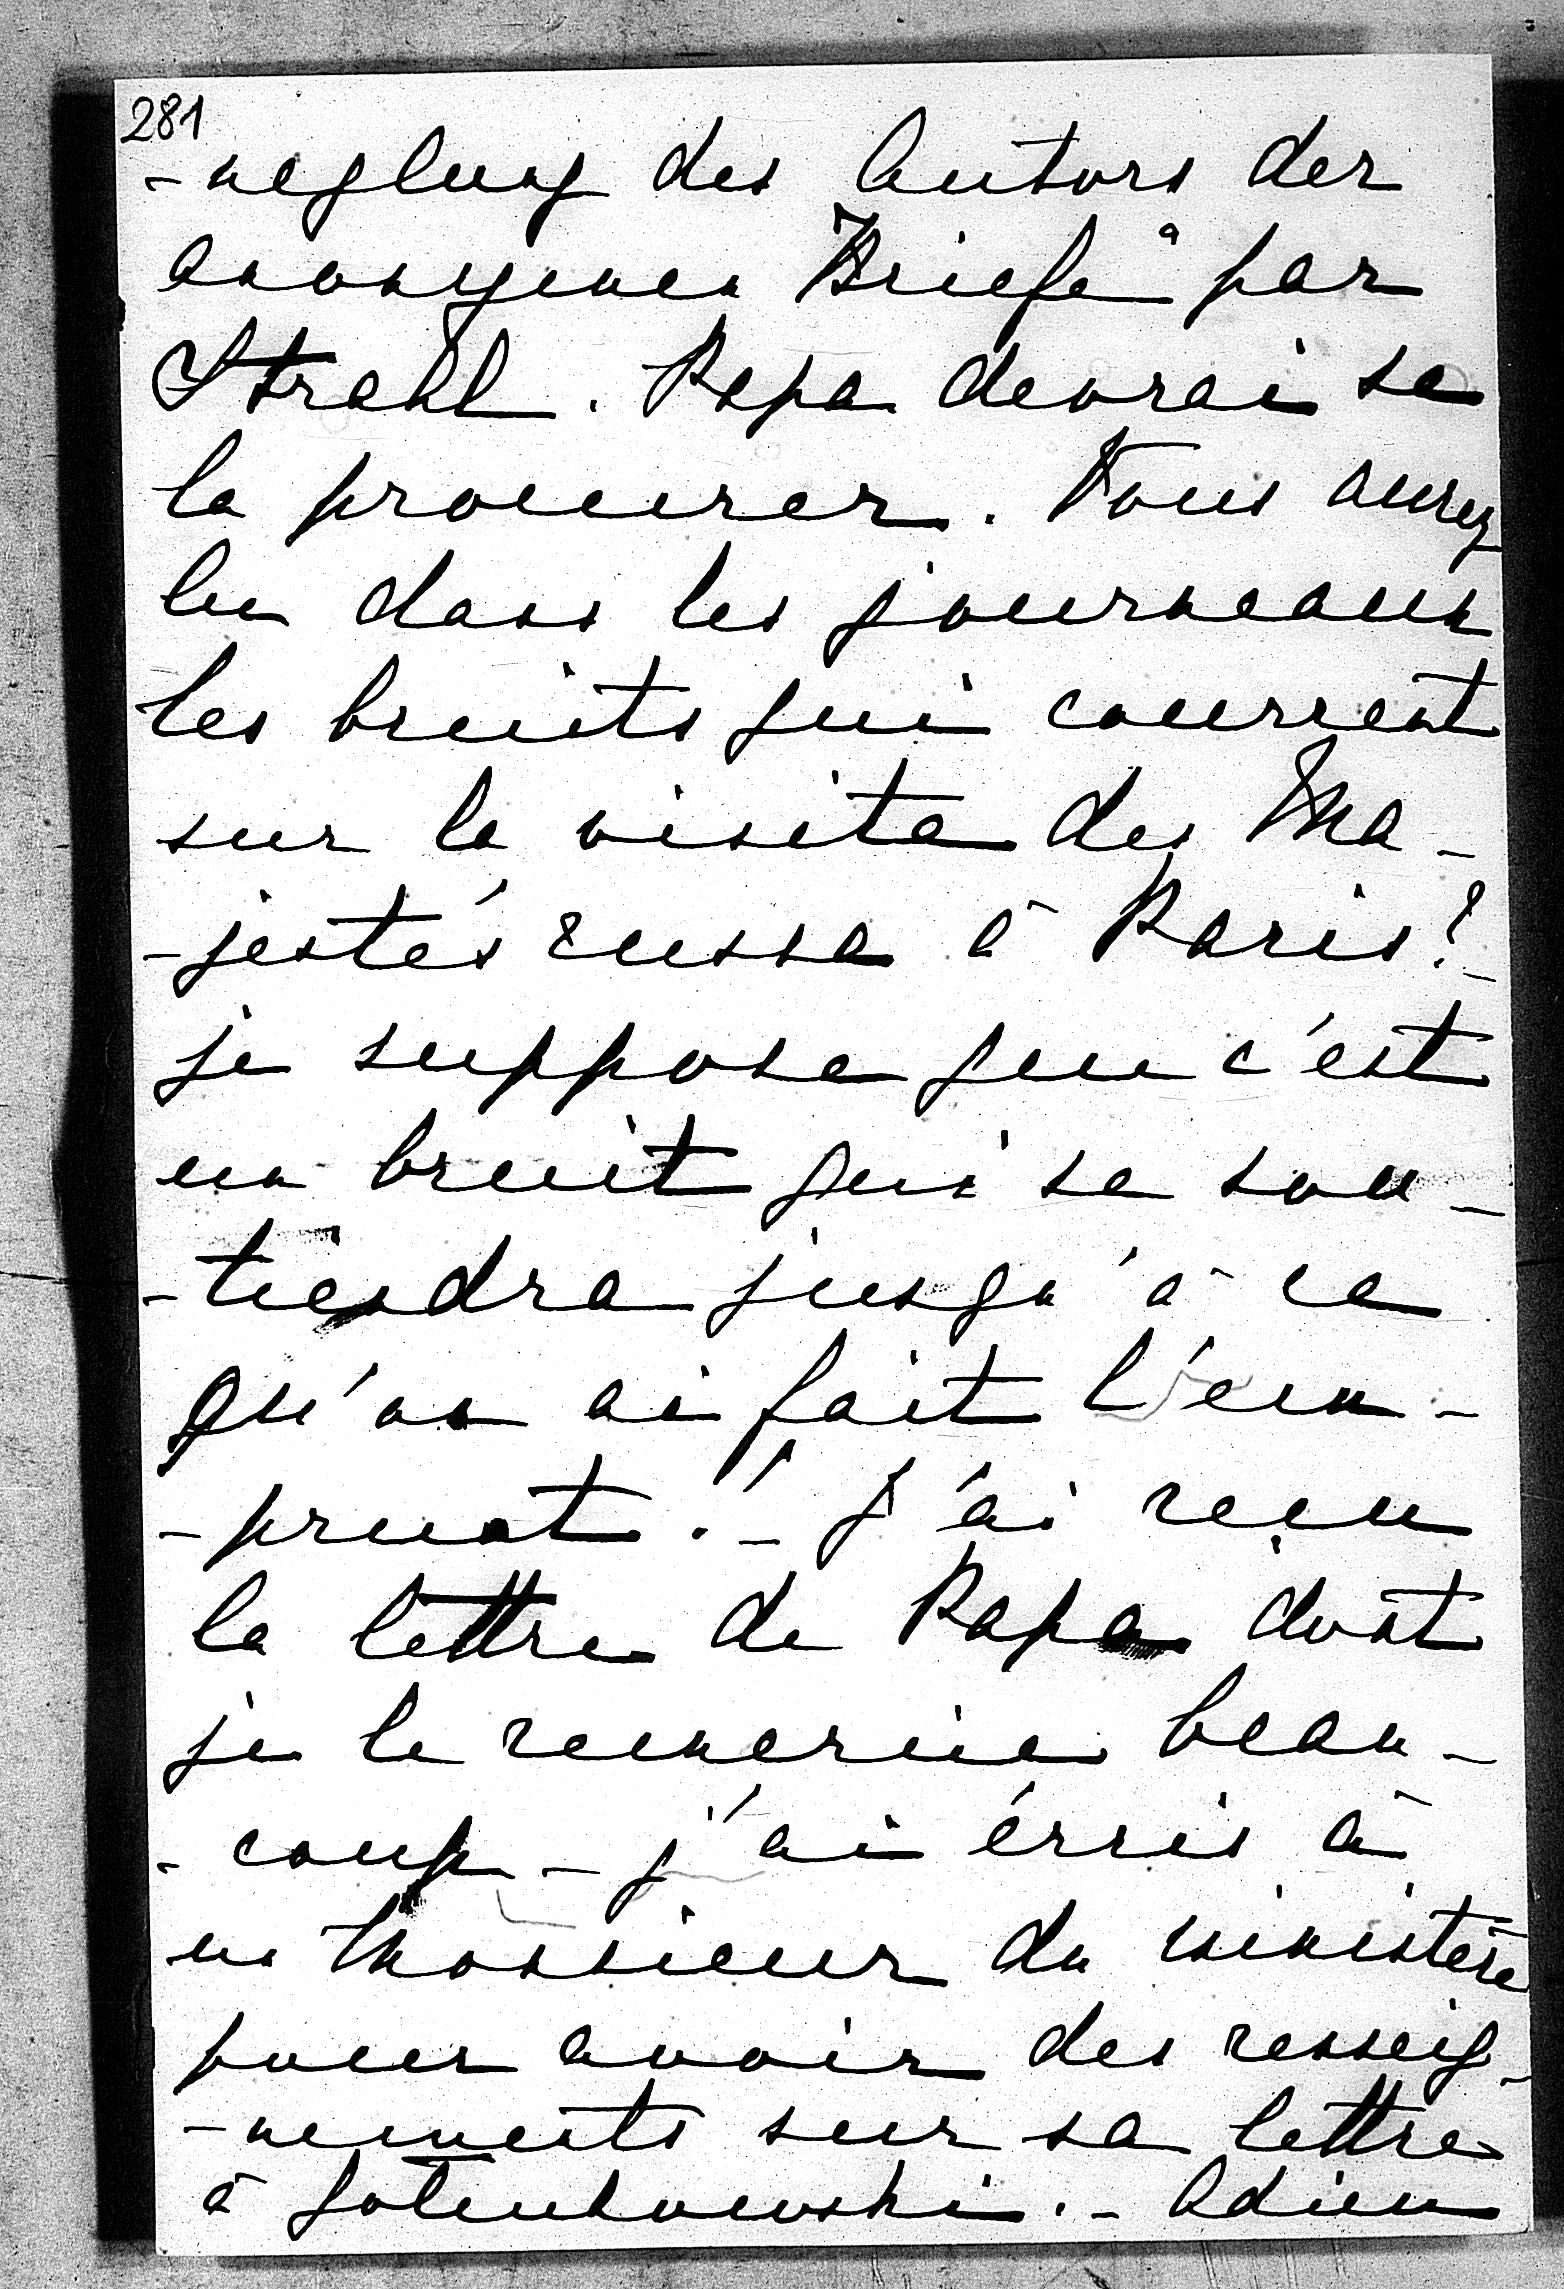 281
-neglung des Autors der
anonymen Briefe" par
Strahl. Papa devrai se
la procurer. Vous aurez
lu dans les journeaux
les bruits qui courrent
sur la visite des Ma-
-jestés russe à Paris?-
je suppose que c'est
un bruit qui se sou-
-tiendra jusqu'à ce
qu'on ai fait l'em-
-prunt!- J'ai reçu
la lettre de Papa dont
je le remercie beau-
-coup - j'ai écris à
un Monsieur du ministère
pour avoir des renseig-
-nements sur sa lettre
à Golenkowski.- Adieu